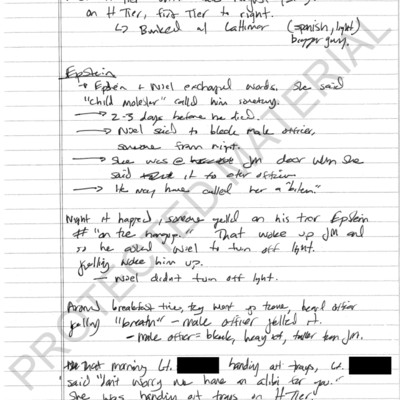 on H Tier, first Tier to right.
↳ Bunked w/ Lattimer (Spanish, light)
bigger guy.
Epstein
→ Epstein + Noel exchanged words, she said
"child molester" called him something.
→ 2-3 days before he died.
→ Noel said to black male officer,
someone from night.
→ She was @ JM door when she
said it to other officer.
→ He may have called her a "bitch."
Night it happened, someone yelled on his tier Epstein
"on the hangup." That woke up JM and
so he asked Noel to turn off light.
yelling woke him up.
- Noel didn't turn off light.
Around breakfast time, they went up there, heard officer
yelling "breath" - male officer yelled it.
- Male officer = black, heavy set, taller than JM.
That morning Lt. handing out trays, Lt.
said "don't worry we have an alibi for you."
She was handing out trays on H Tier.
PROTECTED MATERIAL